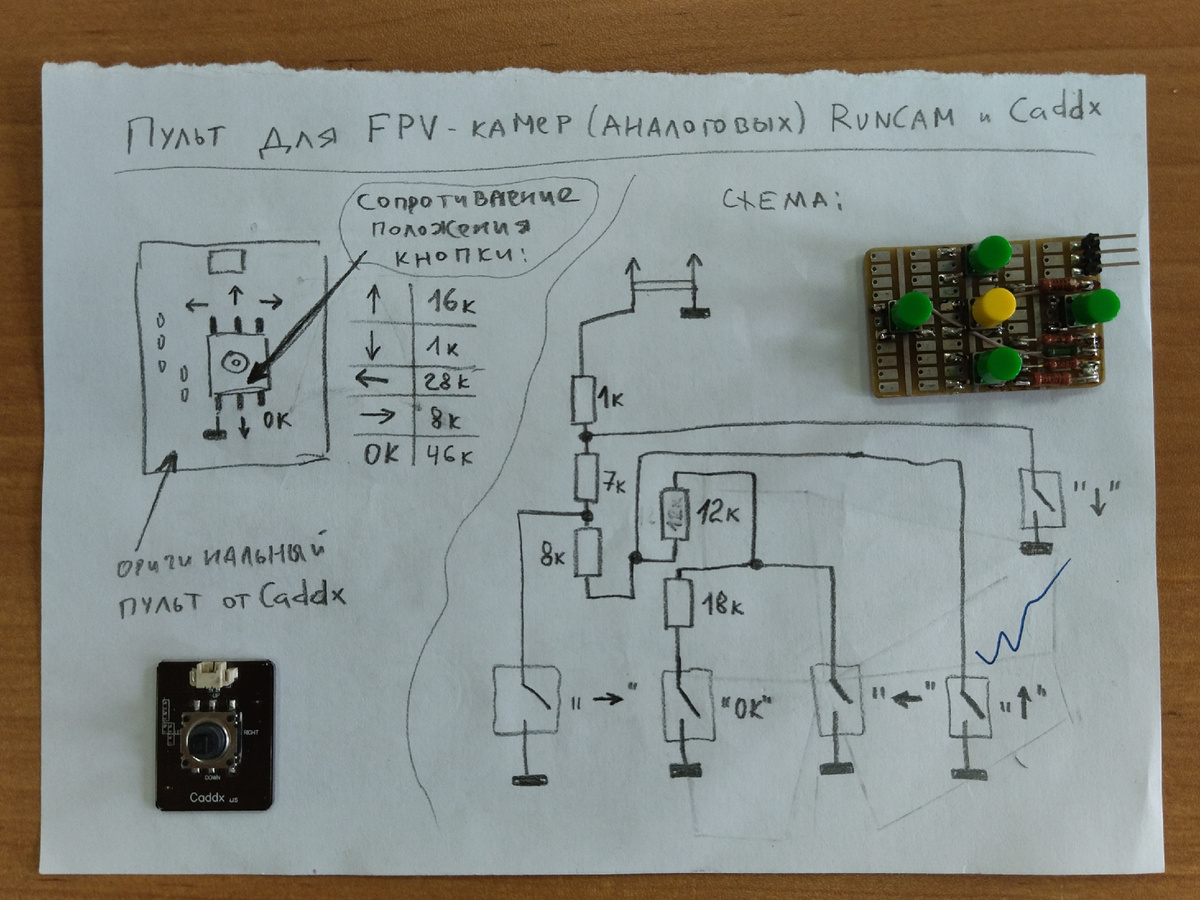 Пульт для FPV-камер (аналоговых) RUNCAM и Caddx
Сопротивление
положения
кнопки:
↑ 16к
↓ 1к
← 28к
→ 8к
ОК 46к
← ↑ →
↓ ОК
оригинальный
пульт от Caddx
RIGHT
DOWN
Caddx us
СХЕМА:
1к
7к
8к
12к
12к
18к
"↓"
"→"
"ОК"
"←"
"↑"